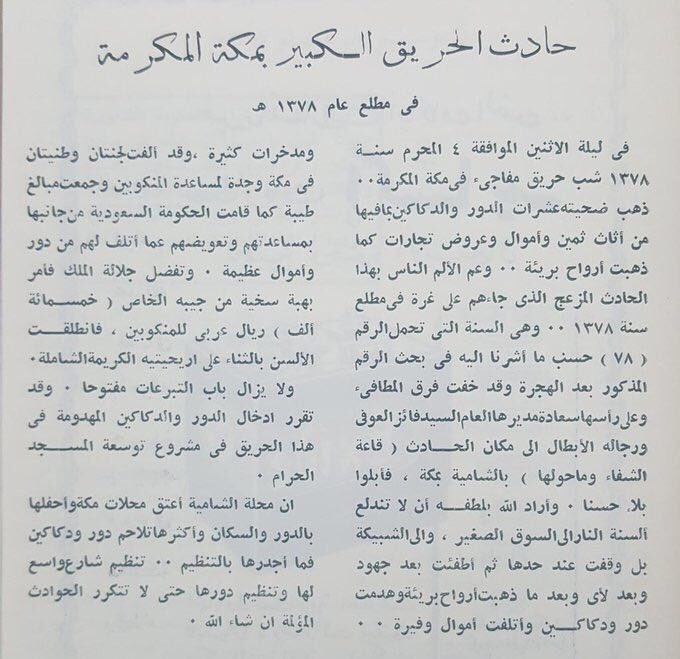 حادث الحريق الكبير بمكة المكرمة
فى مطلع عام ١٣٧٨ هـ
فى ليلة الاثنين الموافقة ٤ المحرم سنة
١٣٧٨ شب حريق مفاجىء فى مكة المكرمة ٠٠
ذهب ضحيته عشرات الدور والدكاكين بمافيها
من أثاث ثمين وأموال وعروض تجارات كما
ذهبت أرواح بريئة ٠٠ وعم الألم الناس بهذا
الحادث المزعج الذى جاءهم على غرة فى مطلع
سنة ١٣٧٨ ٠٠ وهى السنة التى تحمل الرقم
( ٧٨ ) حسب ما أشرنا اليه فى بحث الرقم
المذكور بعد الهجرة وقد خفت فرق المطافىء
وعلى رأسها سعادة مديرها العام السيد فائز العوفى
ورجاله الأبطال الى مكان الحادث ( قاعة
الشفاء وماحولها ) بالشامية بمكة ، فأبلوا
بلاء حسنا ٠ وأراد الله بلطفه أن لا تندلع
ألسنة النار الى السوق الصغير ، والى الشبيكة
بل وقفت عند حدها ثم أطفئت بعد جهود
وبعد لأى وبعد ما ذهبت أرواح بريئة وهدمت
دور ودكاكين وأتلفت أموال وفيرة ٠ ٠
ومدخرات كثيرة ، وقد ألفت لجنتان وطنيتان
فى مكة وجدة لمساعدة المنكوبين وجمعت مبالغ
طيبة كما قامت الحكومة السعودية من جانبها
بمساعدتهم وتعويضهم عما أتلف لهم من دور
وأموال عظيمة ٠ وتفضل جلالة الملك فأمر
بهبة سخية من جيبه الخاص ( خمسمائة
ألف ) ريال عربى للمنكوبين ، فانطلقت
الألسن بالثناء على اريحيته الكريمة الشاملة ٠
ولا يزال باب التبرعات مفتوحا ٠ وقد
تقرر ادخال الدور والدكاكين المهدومة فى
هذا الحريق فى مشروع توسعة المسجد
الحرام ٠
ان محلة الشامية أعتق محلات مكة وأحفلها
بالدور والسكان وأكثرها تلاحم دور ودكاكين
فما أجدرها بالتنظيم ٠٠ تنظيم شارع واسع
لها وتنظيم دورها حتى لا تتكرر الحوادث
المؤلمة ان شاء الله ٠